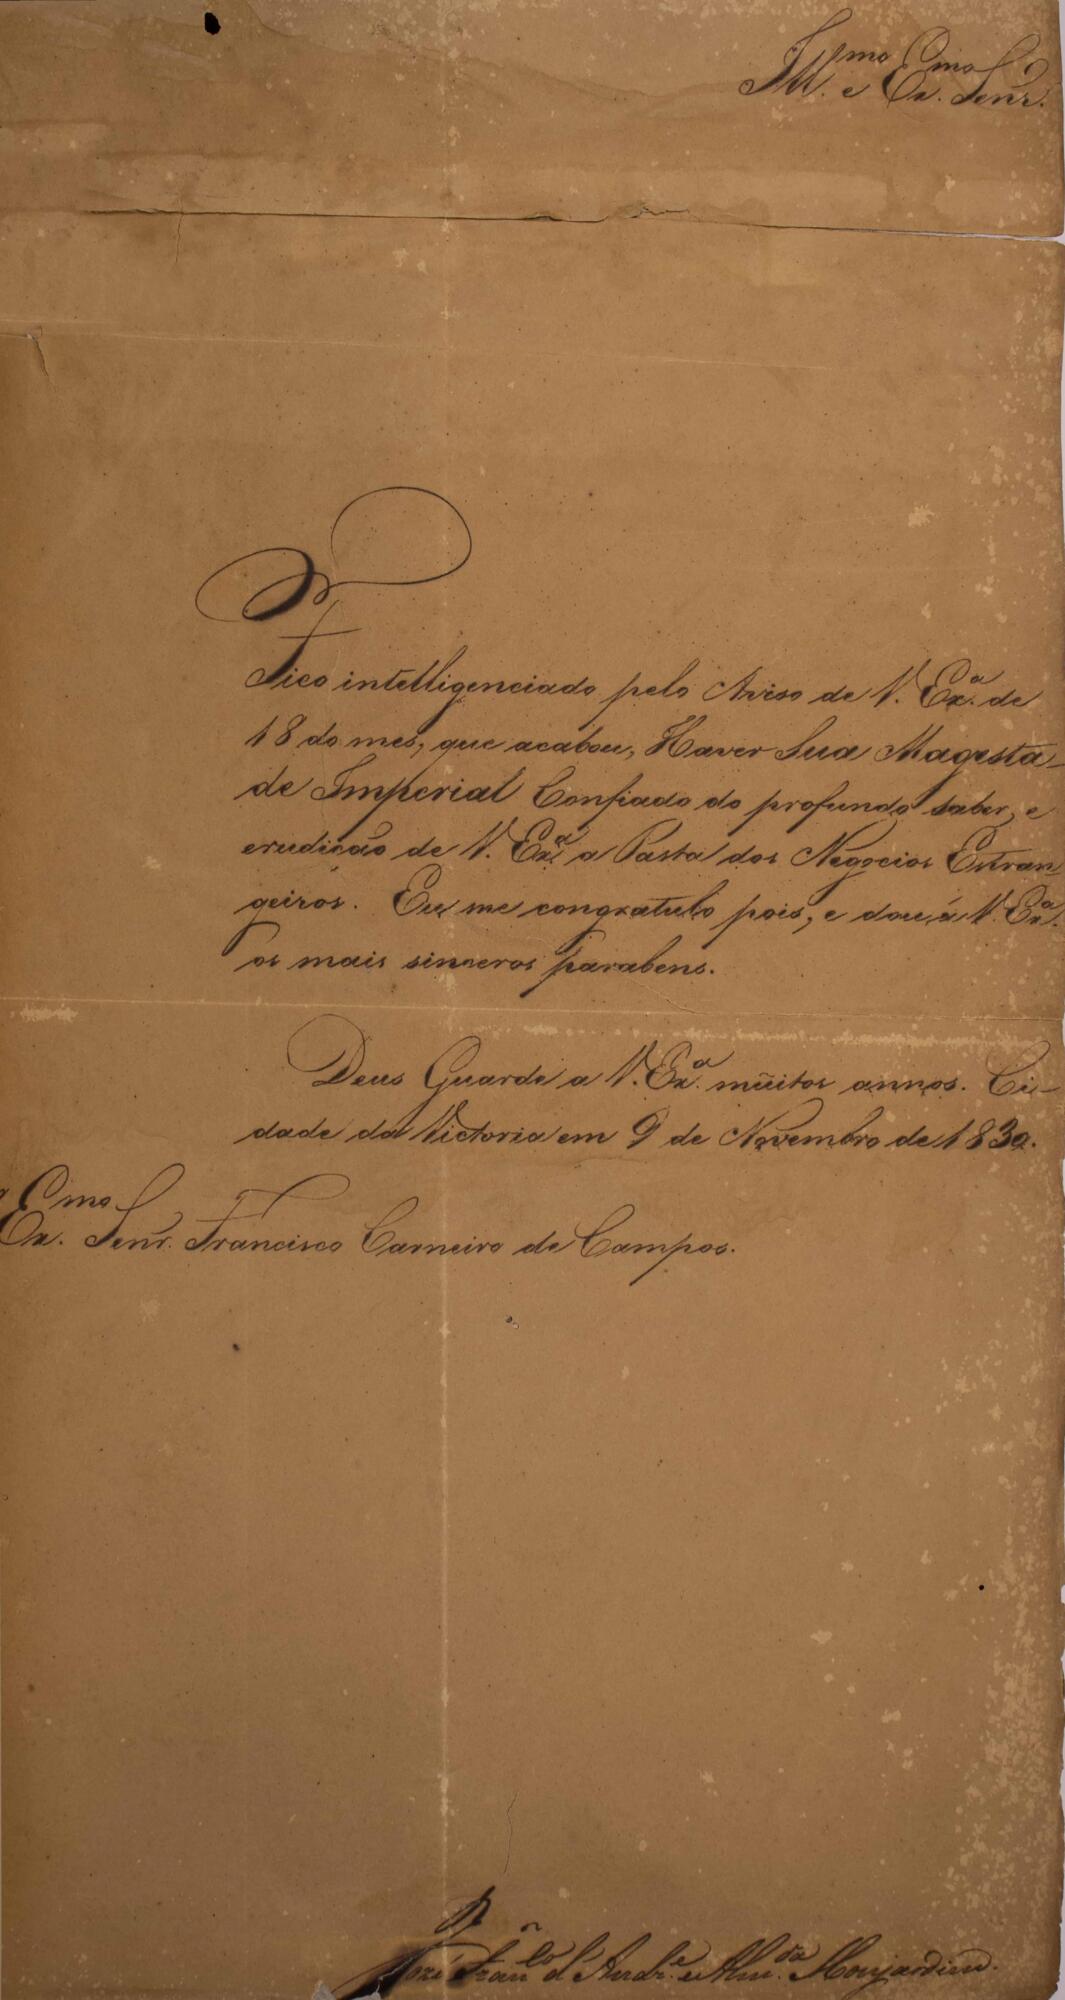 Ill.mo e Ex.mo Senr.
Fico intelligenciado pelo Aviso de V. Ex.a de
18 do mes, que acabou, Haver Sua Magesta-
de Imperial Confiado do profundo saber, e
erudição de V. Ex.a a Pasta dos Negocios Estran-
geiros. Eu me congratulo pois, e dou á V. Ex.a
os mais sinceros parabens.
Deus Guarde a V. Ex.a muitos annos. Ci-
dade da Victoria em 9 de Novembro de 1830.
Ex.mo Senr. Francisco Carneiro de Campos.
José Fran.co d'Andr.e e Alm.da Monjardim.